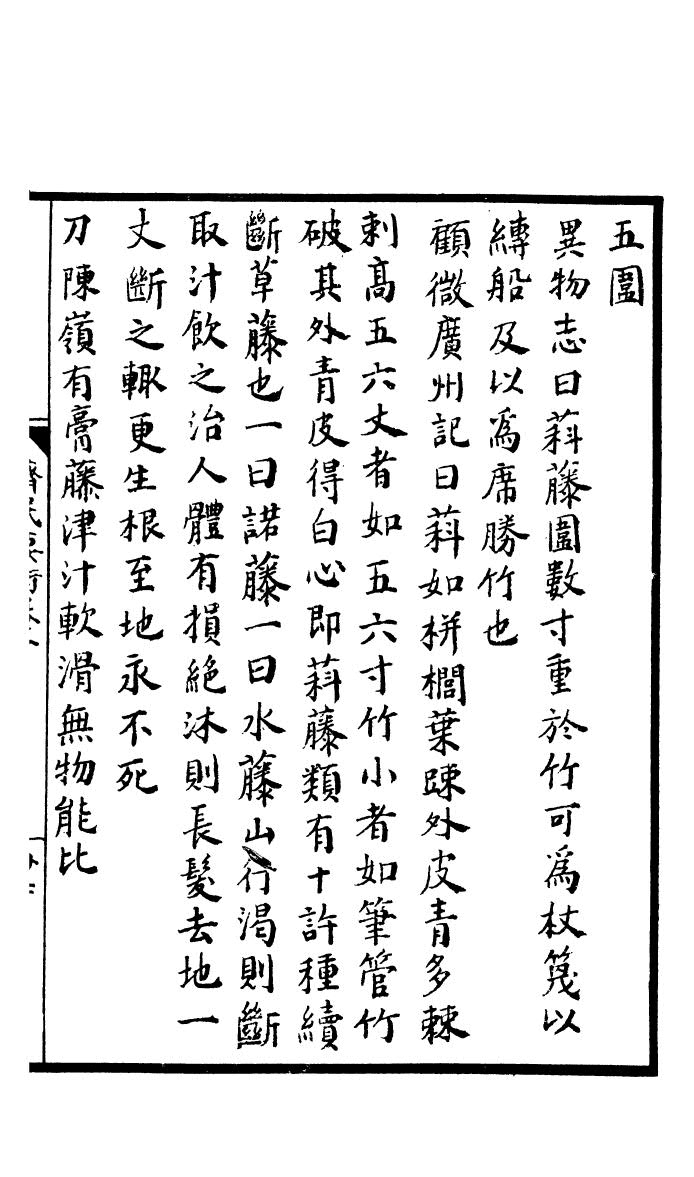 五圍
異物志曰䔉藤圍數寸重於竹可爲杖篾以
縳船及以爲席勝竹也
顧微廣州記曰䔉如栟櫚葉踈外皮青多棘
刺高五六丈者如五六寸竹小者如筆管竹
破其外青皮得白心即䔉藤類有十許種續
斷草藤也一曰諾藤一曰水藤山行渴則斷
取汁飲之治人體有損絶沐則長髮去地一
丈斷之輙更生根至地永不死
刀陳嶺有膏藤津汁軟滑無物能比